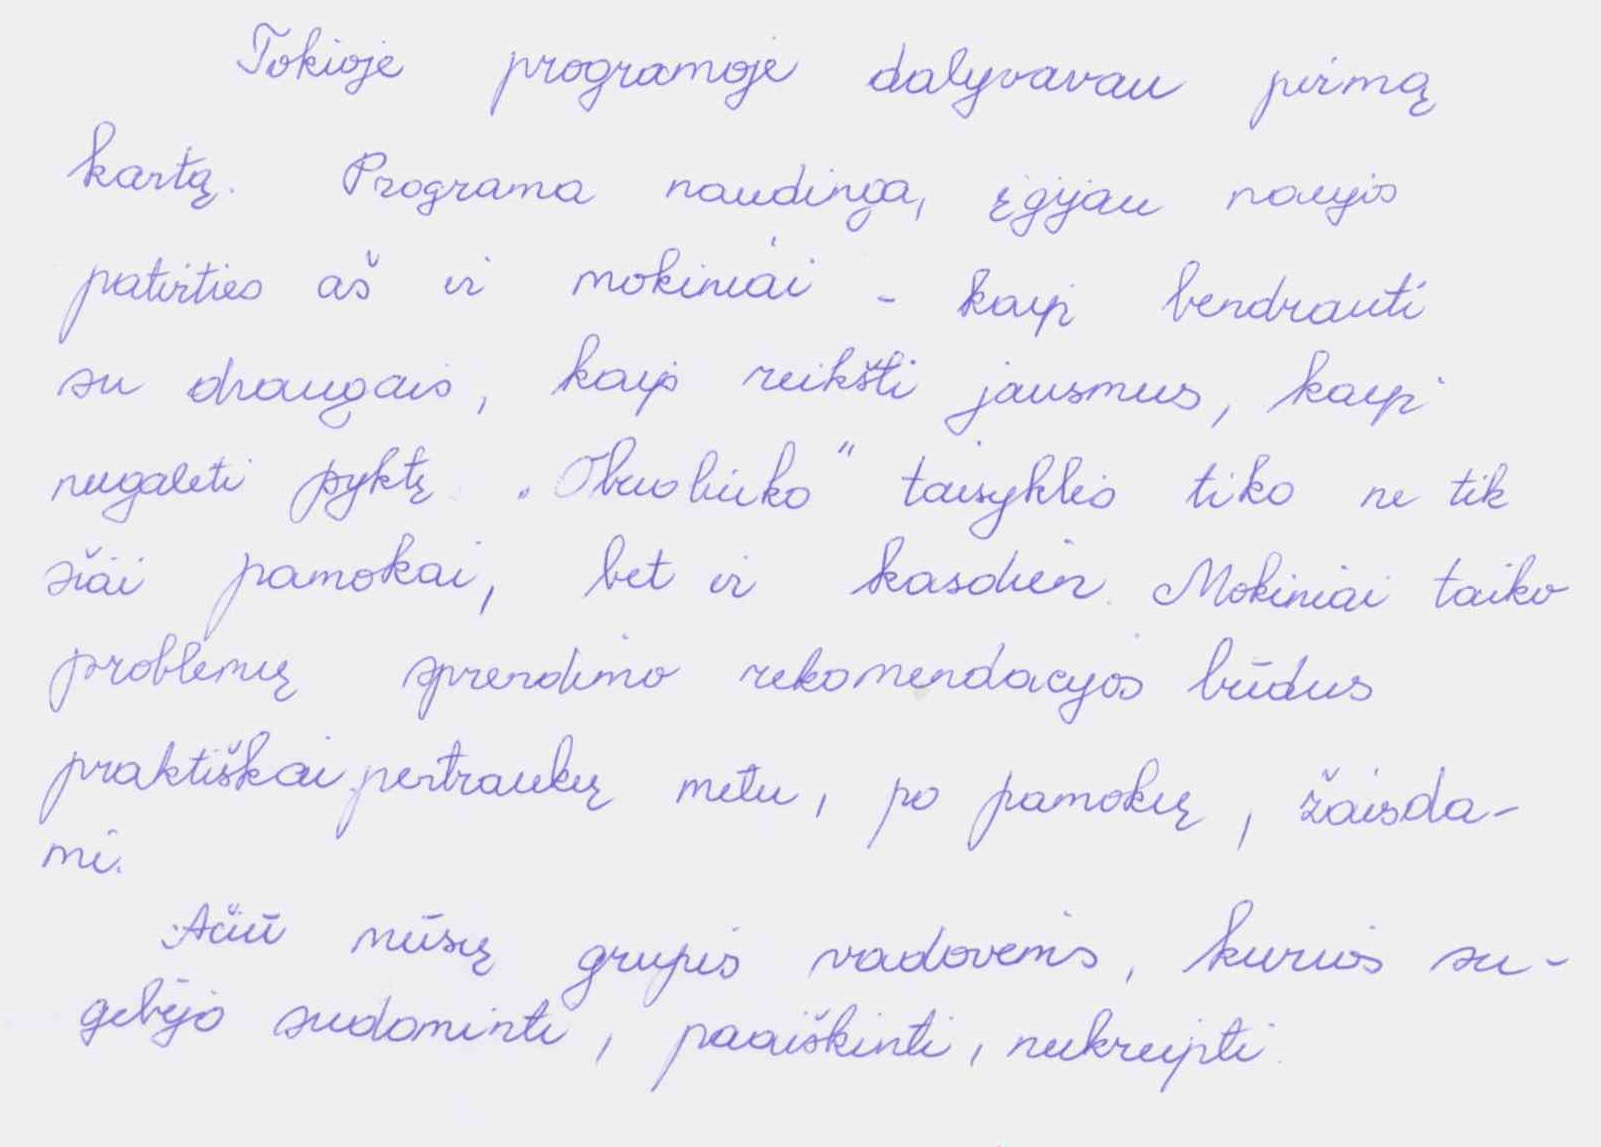 Tokioje programoje dalyvavau pirmą
kartą. Programa naudinga, įgijau naujos
patirties aš ir mokiniai - kaip bendrauti
su draugais, kaip reikšti jausmus, kaip
nugalėti pyktį. „Obuoliuko" taisyklės tiko ne tik
šiai pamokai, bet ir kasdien. Mokiniai taiko
problemų sprendimo rekomendacijos būdus
praktiškai pertraukų metu, po pamokų, žaisda-
mi.
Ačiū mūsų grupės vadovėms, kurios su-
gebėjo sudominti, paaiškinti, nukreipti.